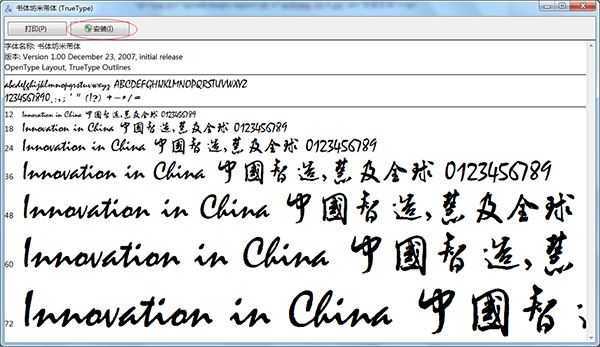 书体坊米芾体 (TrueType)
打印(P) 安装(I)
字体名称: 书体坊米芾体
版本: Version 1.00 December 23, 2007, initial release
OpenType Layout, TrueType Outlines
abcdefghijklmnopqrstuvwxyz ABCDEFGHIJKLMNOPQRSTUVWXYZ
1234567890.:,; ' " (!?) +-*/=
12 Innovation in China 中國智造,慧及全球 0123456789
18 Innovation in China 中國智造,慧及全球 0123456789
24 Innovation in China 中國智造,慧及全球 0123456789
36 Innovation in China 中國智造,慧及全球 0123456789
48 Innovation in China 中國智造,慧及全球
60 Innovation in China 中國智造,慧
72 Innovation in China 中國智